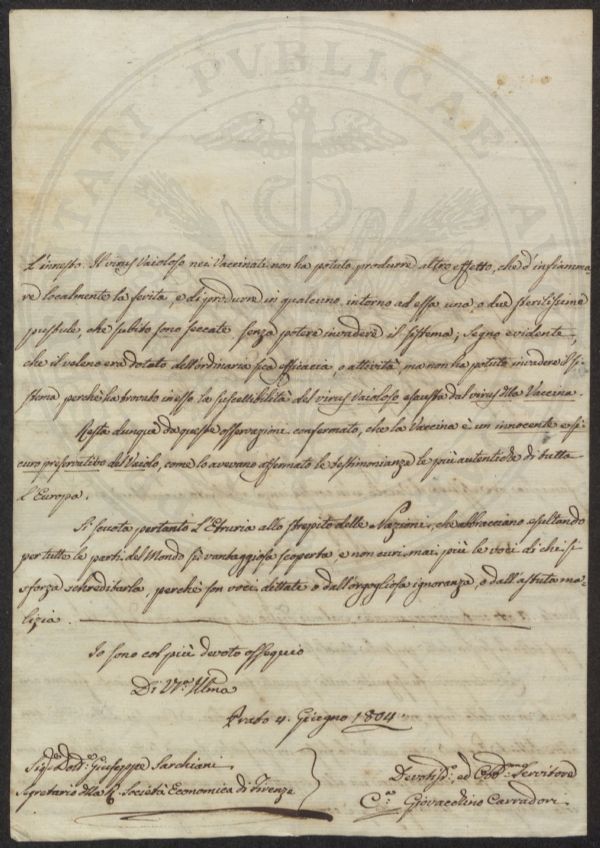 TATI PVBLICAE
L'innesto. Il virus Vaioloso nei Vaccinati non ha potuto produrre altro effetto, che d'infiamma-
re localmente la ferita, e di produrre in qualcuno intorno ad essa una, o due sterilissime
pustule, che subito sono seccate senza potere invadere il sistema; Segno evidente,
che il veleno era dotato dell'ordinaria sua efficacia, o attività, ma non ha potuto invadere il Si-
stema perchè ha trovato in esso la suscettibilità del virus Vaioloso esausta dal virus della Vaccina.
Resta dunque da queste osservazioni confermato, che la Vaccina è un innocente e si-
curo preservativo del Vaiolo, come lo avevano affermato le testimonianze le più autentiche di tutta
l'Europa.
Si scuota pertanto l'Etruria allo strepito delle Nazioni, che abbracciano esultando
per tutte le parti del Mondo sì vantaggiosa scoperta, e non curi mai più le voci di chi si
sforza screditarla, perchè son voci dettate o dall'orgogliosa ignoranza, o dall'astuta ma-
lizia.
Io sono col più devoto ossequio
Di V.ra Ulma
Prato 4. Giugno 1804
Sig.re Dott.e Giuseppe Sarchiani
Segretario della R. Società Economica di Firenze
Devotiss.o, ed Obb.mo Servitore
Giovacchino Carradori